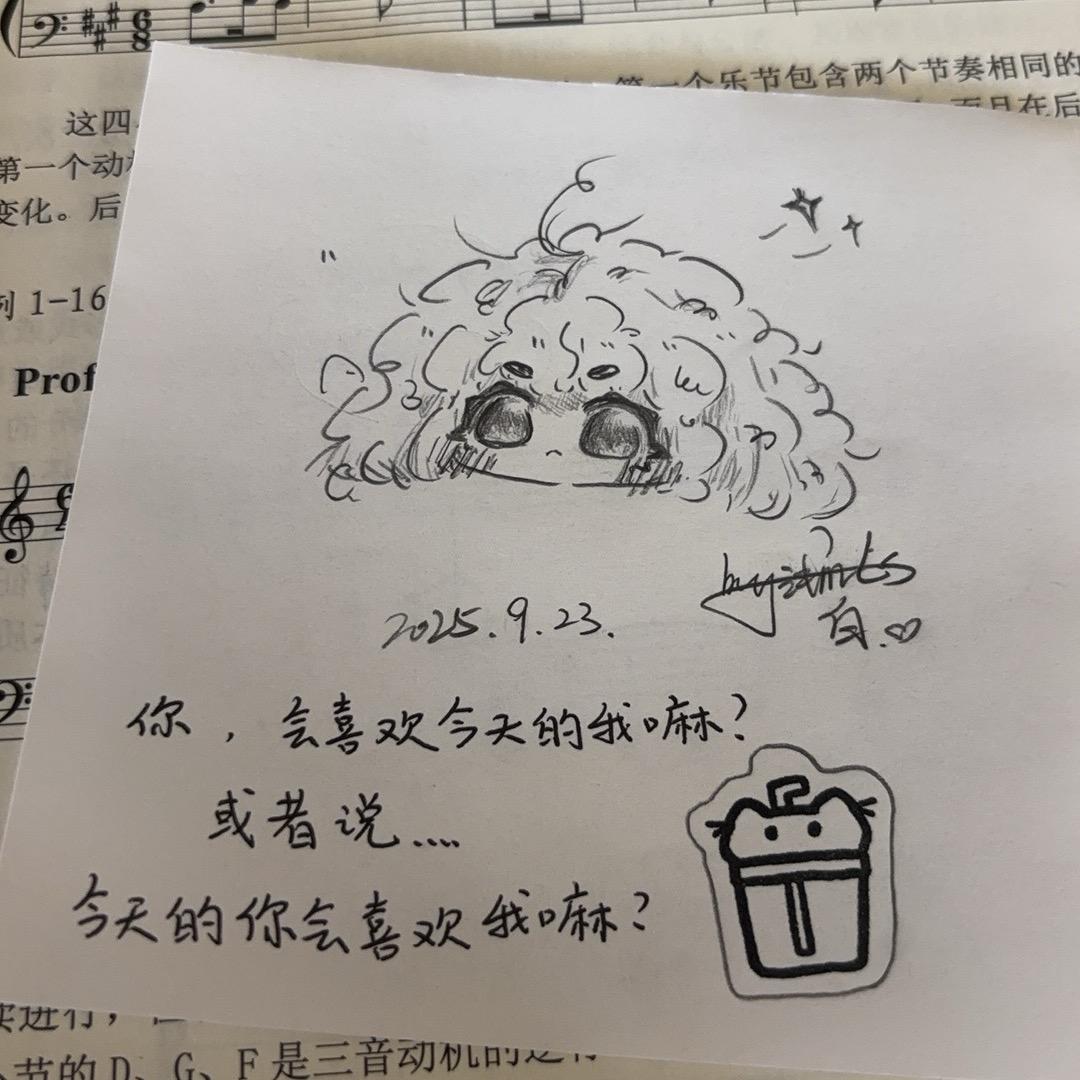 第一个乐节包含两个节奏相同的
这四
而且在后
第一个动
变化。后
例 1-16
Prof
2025.9.23.
白.♡
你，会喜欢今天的我嘛？
或者说....
今天的你会喜欢我嘛？
续进行，
节的 D、G、F 是三音动机的逆行